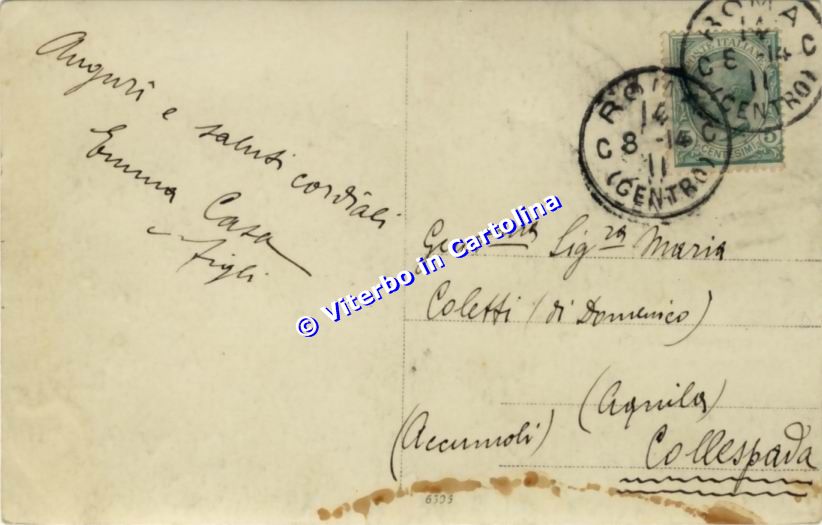 Auguri e saluti cordiali
Emma Casa
e figli
ROMA
14
8 - 14
11
(CENTRO)
C C
ROMA
14
C 8 - 14 C
11
(CENTRO)
POSTE ITALIANE
CENTESIMI 5
Sig.ra Maria
Coletti (di Domenico)
(Aquila)
(Accumoli) Collespada
6303
© Viterbo in Cartolina